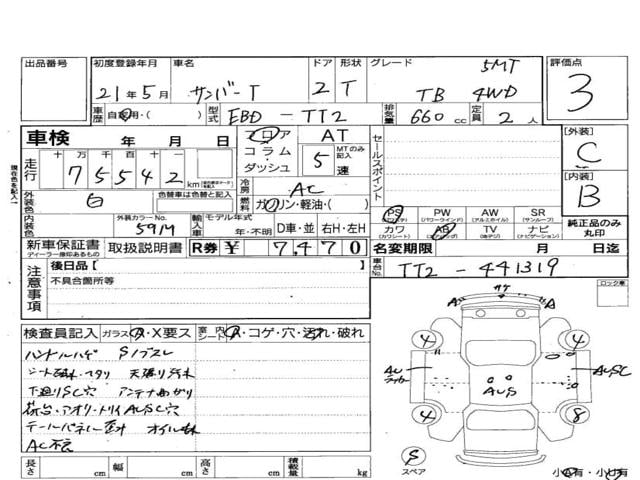 出品番号 初度登録年月 車名 ドア 形状 グレード 5MT 評価点
21年5月 サンバーT 2 T TB 4WD 3
車歴 自家用・( ) 型式 EBD-TT2 排気量 660cc 定員 2人
車検 年 月 日 フロア AT
コラム MTのみ記入
ダッシュ 5速
セールスポイント
[外装] C
[内装] B
現在色を記入
走行 十 万 千 百 十 一
7 5 5 4 2 km
冷房 AC
外装色 白 色替車は色替と記入
燃料 ガソリン・軽油・( )
内装色 外装カラーNo. 591M
輸入車 モデル年式 年・不明 D車・並 右H・左H
PS PW AW SR
(パワステ) (パワーウインド) (アルミホイル) (サンルーフ)
カワ AB TV ナビ
(カワシート) (エアバッグ) (地デジ) (ナビゲーション)
純正品のみ丸印
新車保証書 取扱説明書 R券 ¥ 7,470
ディーラー捺印あるもの
名変期限 月 日迄
車台No. TT2-441319
注意事項 後日品 [ ]
不具合箇所等
ロック車
検査員記入 ガラス A・X要ス 室内シート A・コゲ・穴・汚れ・破れ
ハンドルハゲ Sノブスレ
天張り汚れ
下廻りSC穴 アンテナ曲がり
荷台・アオリ・トリイAUSC穴
AC不良
サケ
A A
4 4
AU
AUS
AUSC
4 8
S
スペア
長さ cm 幅 cm 高さ cm 積載量 kg
小A有・小U有